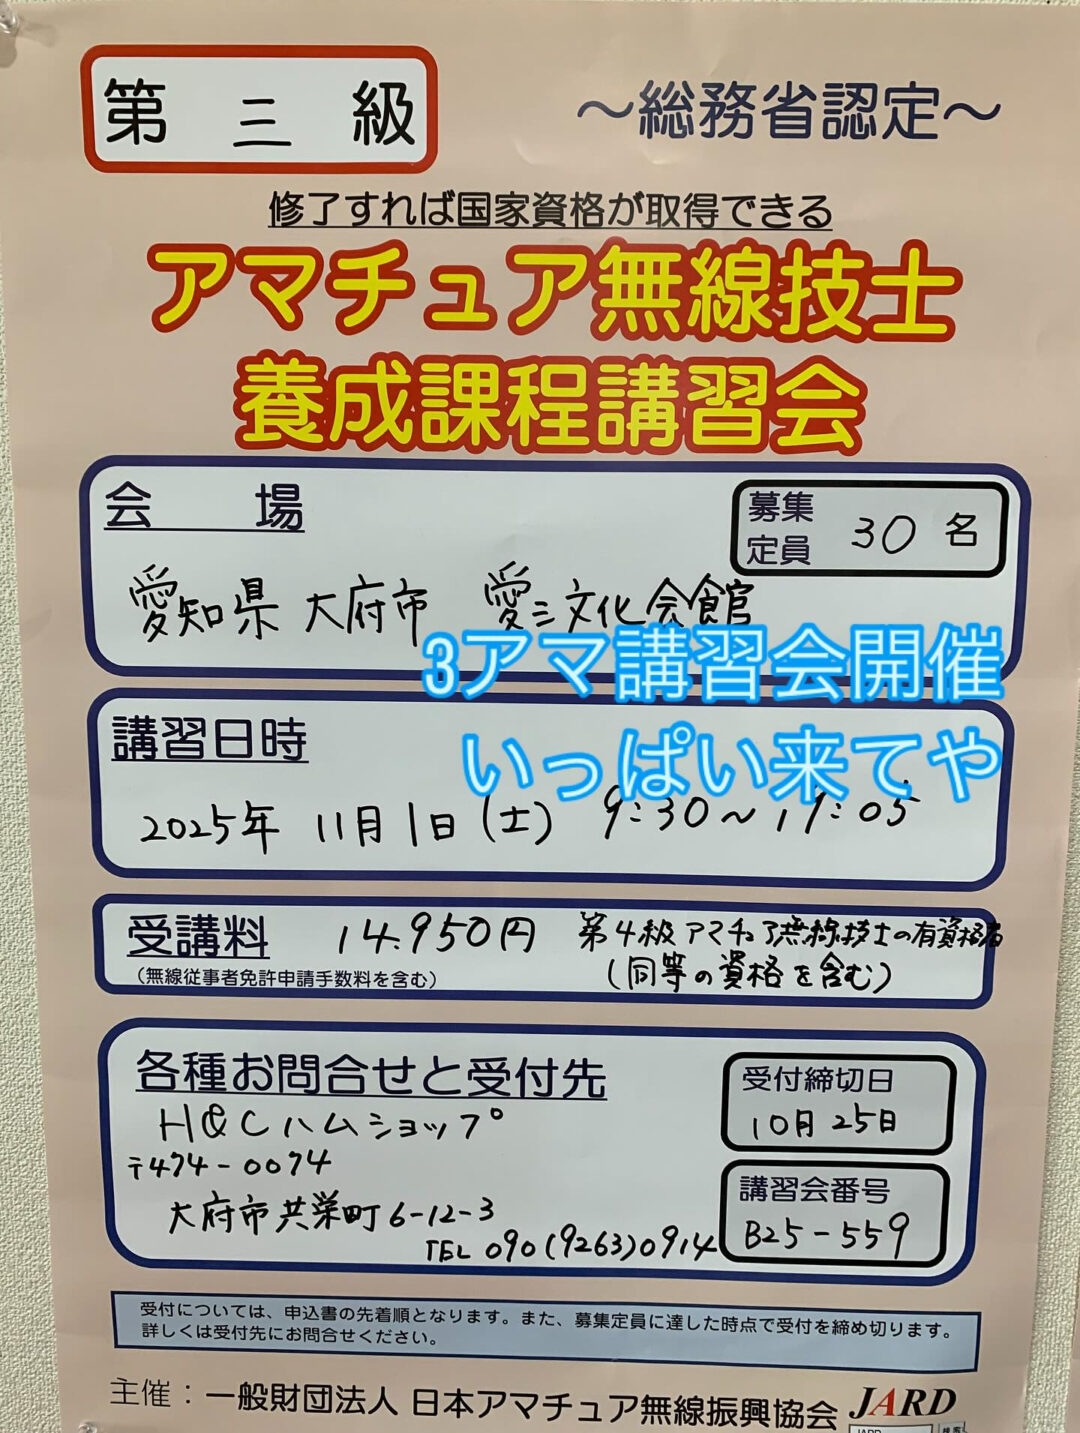 第三級
～総務省認定～
修了すれば国家資格が取得できる
アマチュア無線技士
養成課程講習会
会場
募集定員 30名
愛知県 大府市 愛三文化会館
3アマ講習会開催
いっぱい来てや
講習日時
2025年 11月1日(土) 9:30～19:05
受講料 14.950円 第4級アマチュア無線技士の有資格者
(無線従事者免許申請手数料を含む) (同等の資格を含む)
各種お問合せと受付先
H&Cハムショップ
〒474-0074
大府市共栄町6-12-3
TEL 090(9263)0914
受付締切日
10月25日
講習会番号
B25-559
受付については、申込書の先着順となります。また、募集定員に達した時点で受付を締め切ります。
詳しくは受付先にお問合せください。
主催：一般財団法人 日本アマチュア無線振興協会 JARD
JARD 検索